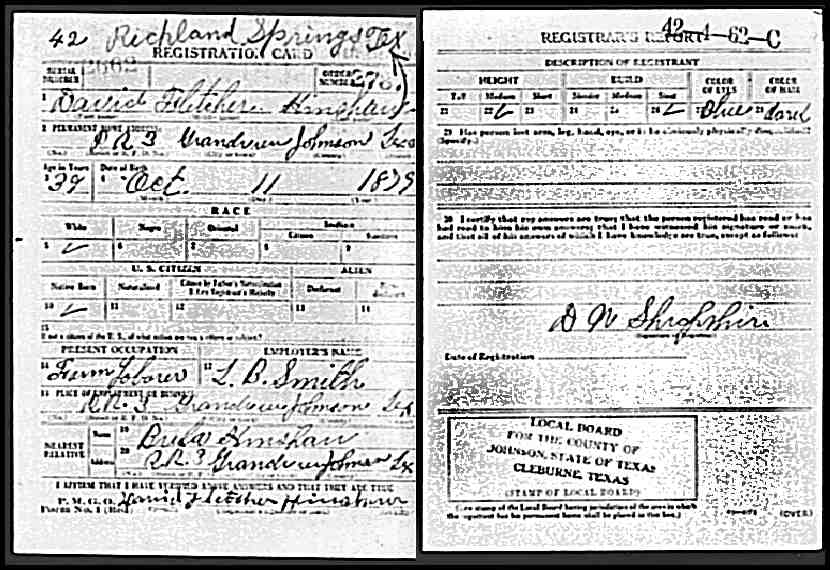 42 Richland Springs Tex
REGISTRATION CARD
SERIAL NUMBER 2662 ORDER NUMBER 276
1 David Fletcher Hinshaw
2 PERMANENT HOME ADDRESS:
R.R. 3 Grandview Johnson Tex
Age in Years Date of Birth
3 39 4 Oct. 11 1879
RACE
White Negro Oriental Indian
Citizen Noncitizen
5 ✓ 6 7 8 9
U. S. CITIZEN ALIEN
Native Born Naturalized Citizen by Father's Naturalization Before Registrant's Majority Declarant Non-declarant
10 ✓ 11 12 13 14
15
If not a citizen of the U. S., of what nation are you a citizen or subject?
PRESENT OCCUPATION EMPLOYER'S NAME
16 Farm Laborer 17 L. B. Smith
18 PLACE OF EMPLOYMENT OR BUSINESS:
R.R. 3 Grandview Johnson Tex
NEAREST RELATIVE Name 19 Hinshaw
Address 20 R.R. 3 Grandview Johnson Tex
I AFFIRM THAT I HAVE VERIFIED ABOVE ANSWERS AND THAT THEY ARE TRUE
P. M. G. O. David Fletcher Hinshaw
Form No. 1 (Red)
REGISTRAR'S REPORT 42-1-62-C
DESCRIPTION OF REGISTRANT
HEIGHT BUILD COLOR OF EYES COLOR OF HAIR
Tall Medium Short Slender Medium Stout
21 22 ✓ 23 24 25 26 ✓ 27 Blue 28 dark
29 Has person lost arm, leg, hand, eye, or is he obviously physically disqualified?
(Specify.)
30 I certify that my answers are true; that the person registered has read or has
had read to him his own answers; that I have witnessed his signature or mark,
and that all of his answers of which I have knowledge are true, except as follows:
D W Shropshire
Date of Registration
LOCAL BOARD
FOR THE COUNTY OF
JOHNSON, STATE OF TEXAS
CLEBURNE, TEXAS
(STAMP OF LOCAL BOARD)
(The stamp of the Local Board having jurisdiction of the area in which
the registrant has his permanent home shall be placed in this box.)
(OVER)